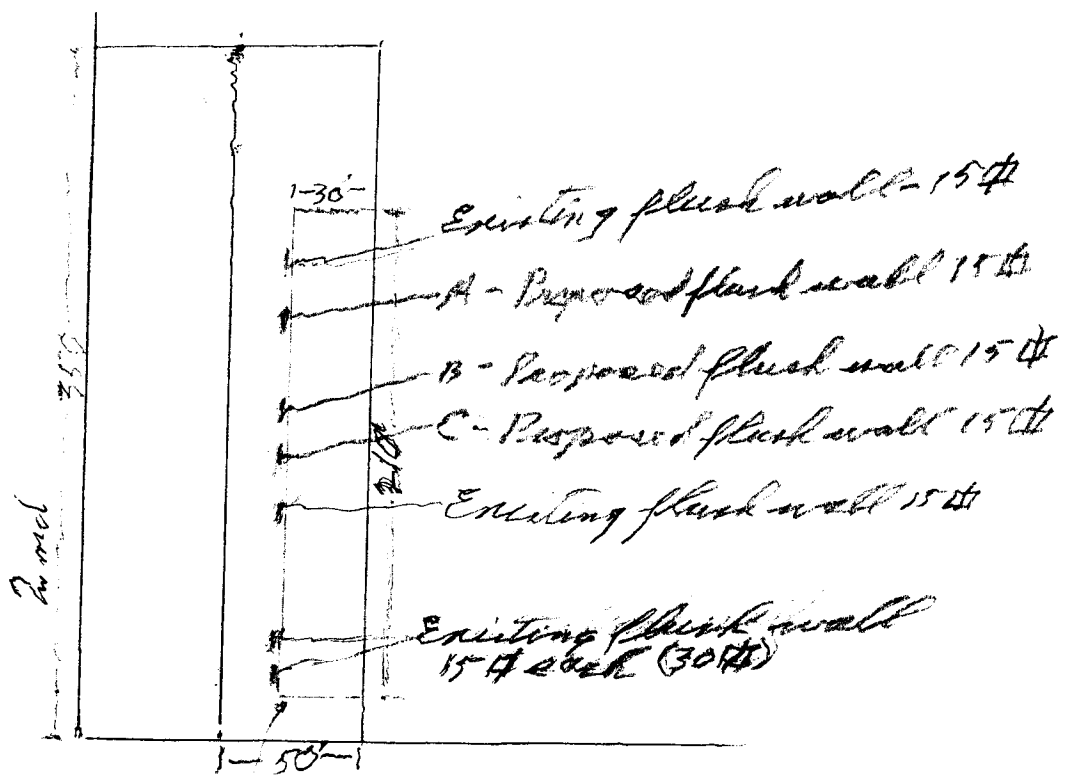 1-30'-
Existing flush wall - 15 ⌗
A - Proposed flush wall 15 ⌗
B - Proposed flush wall 15 ⌗
C - Proposed flush wall 15 ⌗
Existing flush wall 15 ⌗
Existing flush wall
15 ⌗ each (30 ⌗)
350
50'